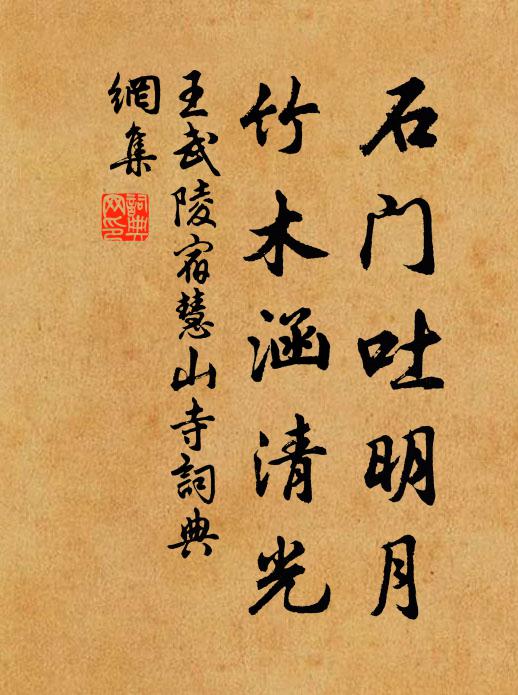 石门吐明月
竹木涵清光
王武陵宿慧山寺詞典
網集
詞典
网印